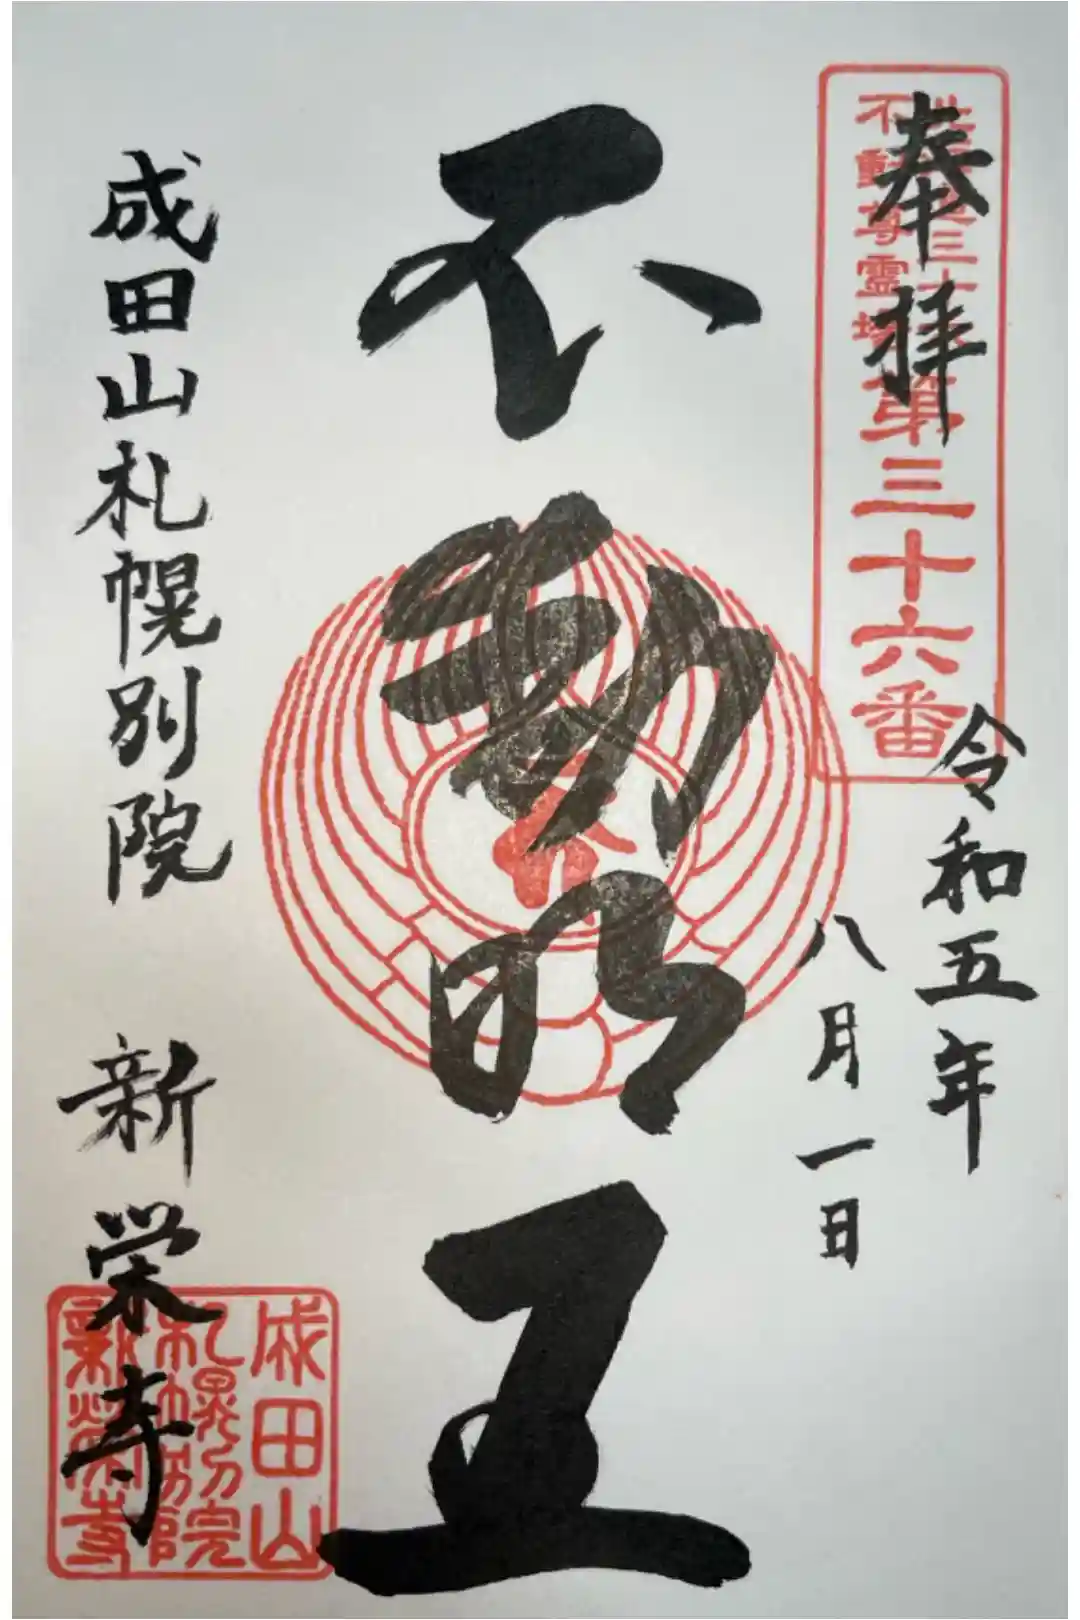 奉拝
北海道三十六
不動尊霊場
第三十六番
令和五年
八月一日
不動明王
成田山札幌別院 新栄寺
成田山
札幌別院
新栄寺